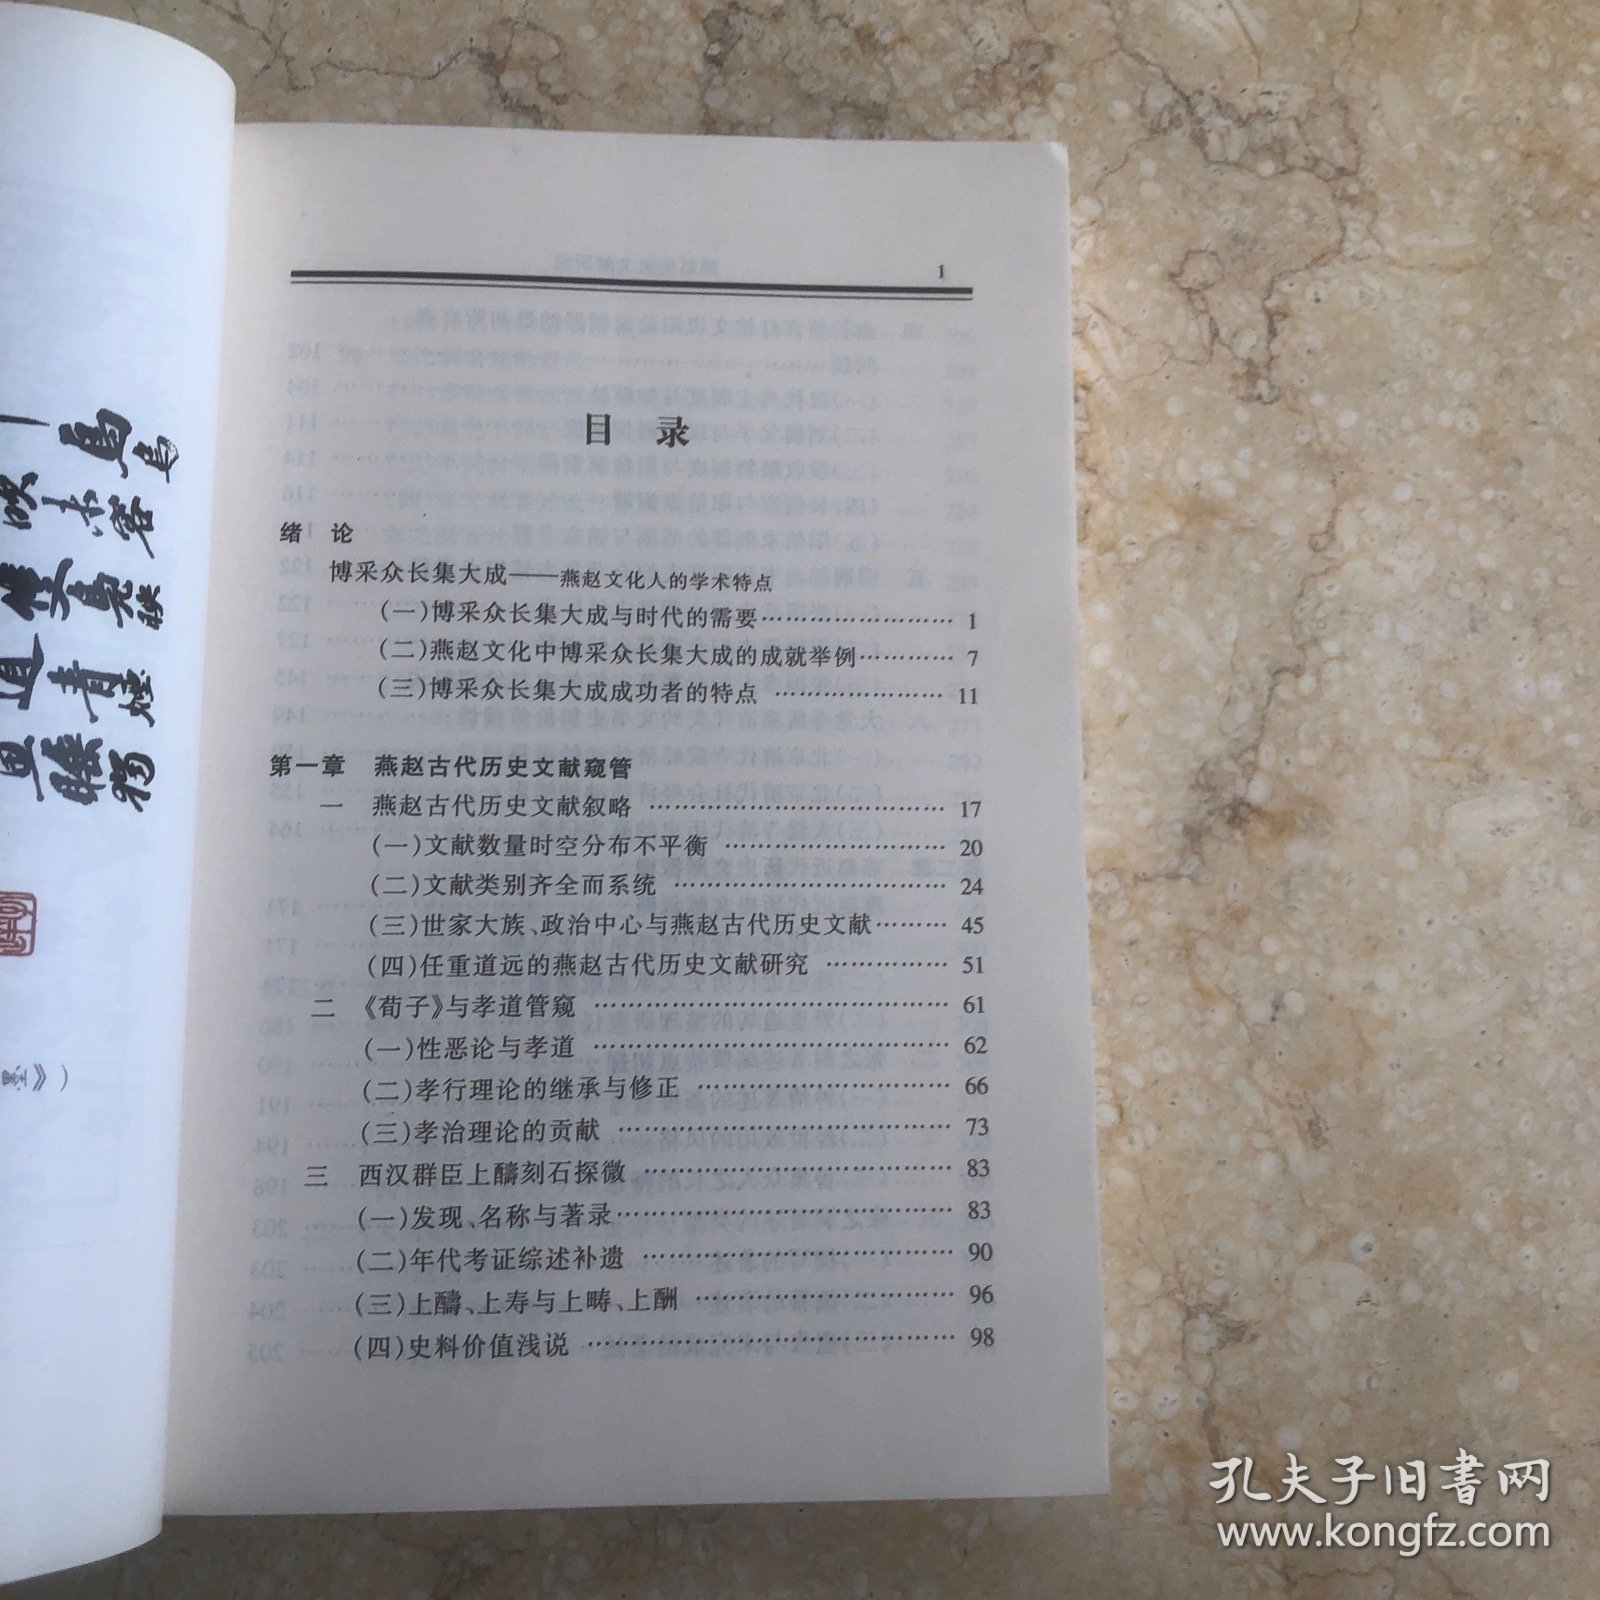 1
目 录
绪 论
博采众长集大成——燕赵文化人的学术特点
(一)博采众长集大成与时代的需要……………………1
(二)燕赵文化中博采众长集大成的成就举例…………7
(三)博采众长集大成成功者的特点 …………………11
第一章 燕赵古代历史文献窥管
一 燕赵古代历史文献叙略 ………………………………17
(一)文献数量时空分布不平衡 ………………………20
(二)文献类别齐全而系统 ……………………………24
(三)世家大族、政治中心与燕赵古代历史文献………45
(四)任重道远的燕赵古代历史文献研究 ……………51
二 《荀子》与孝道管窥 ……………………………………61
(一)性恶论与孝道 ……………………………………62
(二)孝行理论的继承与修正 …………………………66
(三)孝治理论的贡献 …………………………………73
三 西汉群臣上醻刻石探微 ………………………………83
(一)发现、名称与著录…………………………………83
(二)年代考证综述补遗 ………………………………90
(三)上醻、上寿与上畴、上酬 …………………………96
(四)史料价值浅说 ……………………………………98
孔夫子旧书网
www.kongfz.com